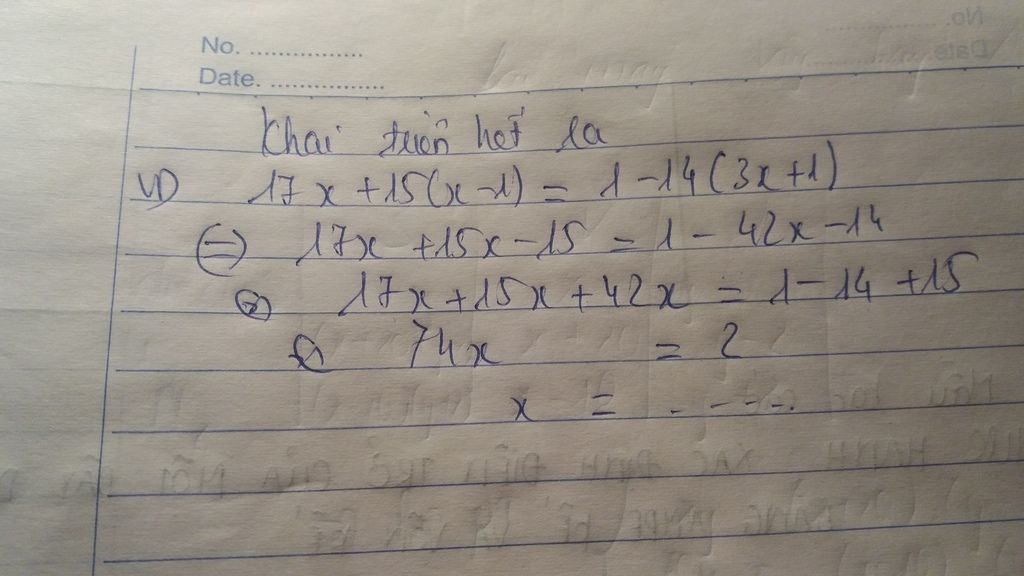 No. ................
Date. .................
Khai triển hết ra
VD 17x + 15(x - 1) = 1 - 14(3x + 1)
⇔ 17x + 15x - 15 = 1 - 42x - 14
⇔ 17x + 15x + 42x = 1 - 14 + 15
⇔ 74x = 2
x = . - - - .